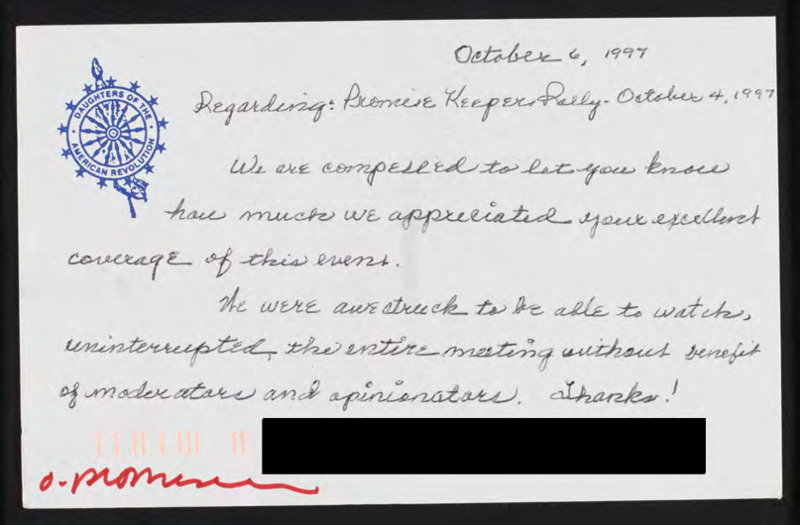 October 6, 1997
DAUGHTERS OF THE
AMERICAN REVOLUTION
Regarding: Promise Keepers Rally - October 4, 1997
We are compelled to let you know
how much we appreciated your excellent
coverage of this event.
We were awestruck to be able to watch,
uninterrupted, the entire meeting without benefit
of moderators and opinionators. Thanks!